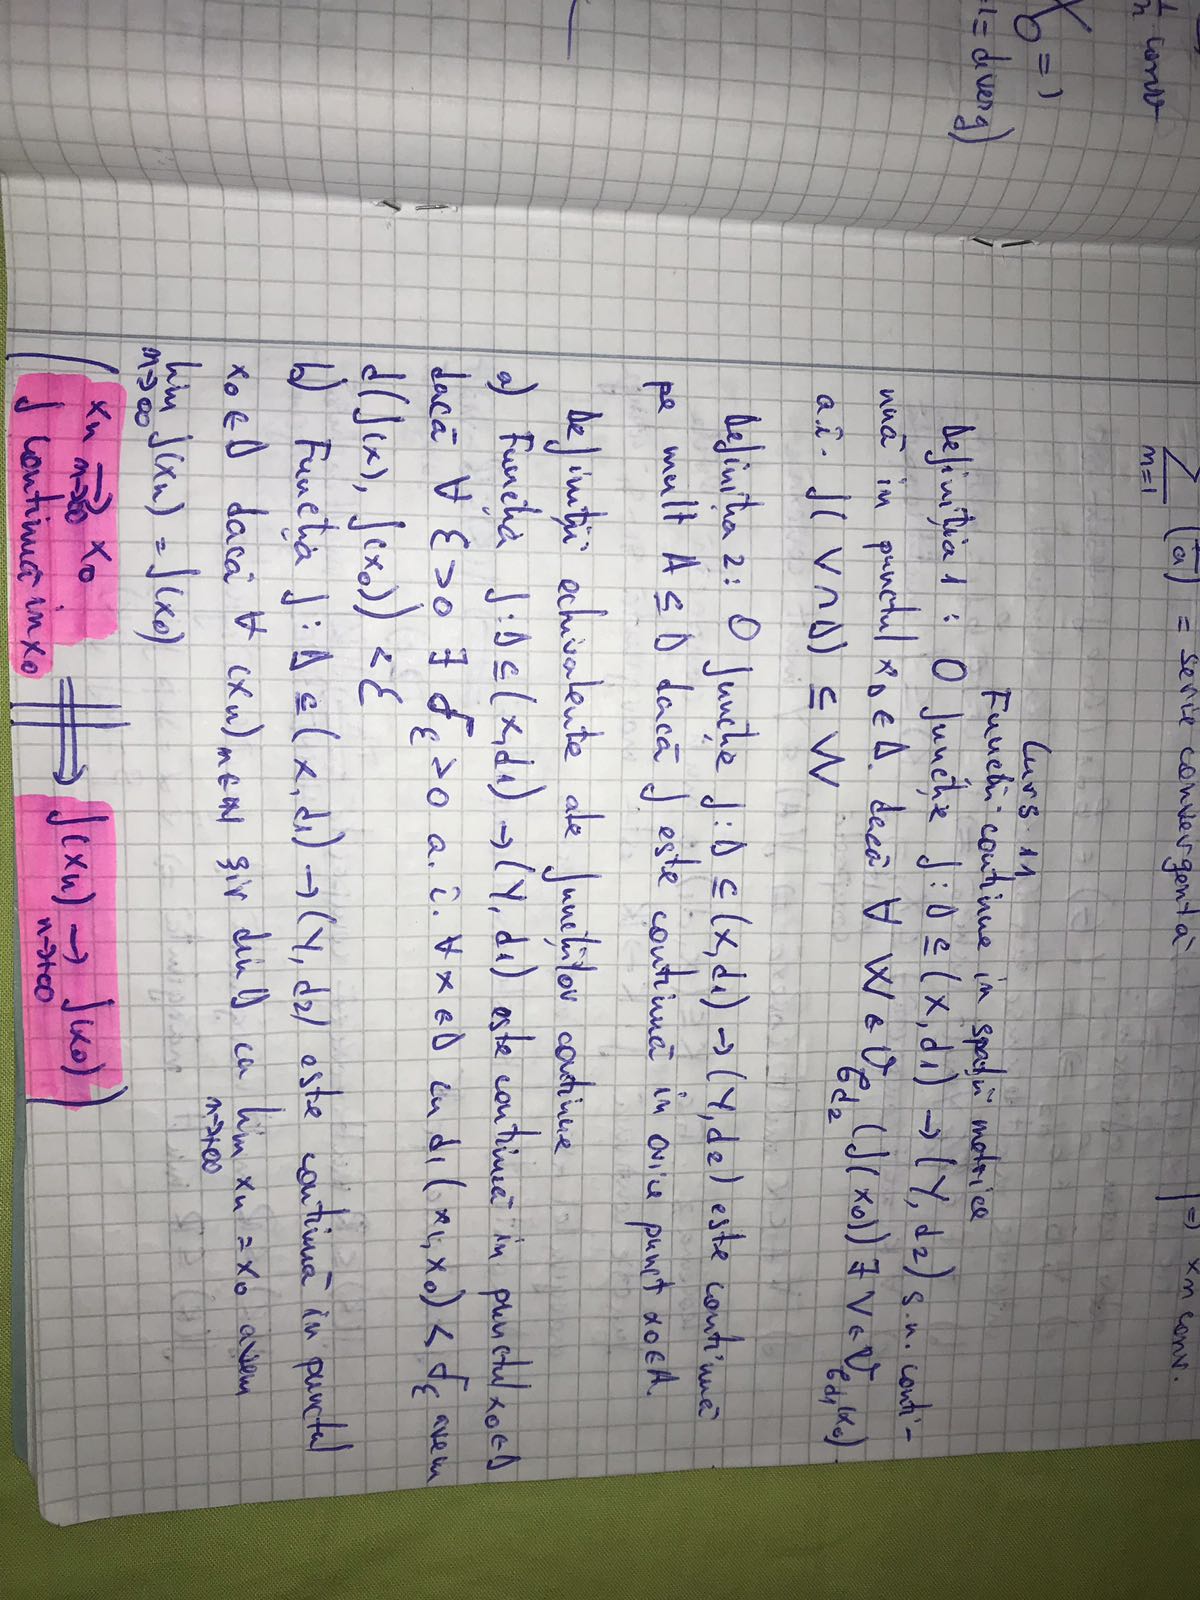 ∑ n=1 (ā) = serie convergentă
|=) xn conv.
Curs 11
Funcții continue in spații metrice
Definiția 1: O funcție f:D⊆(X,d1)→(Y,d2) s.n. conti-
nuă in punctul x0∈D. dacă ∀ W∈V_{6d2}(f(x0)) ∃ V∈V_{6d1}(x0)
a.î. f(V∩D) ⊆ W
Definiția 2: O funcție f:D⊆(X,d1)→(Y,d2) este continuă
pe mult A⊆D dacă f este continuă in orice punct x0∈A.
Definiții echivalente ale funcțiilor continue
a) Funcția f:D⊆(X,d1)→(Y,d1) este continuă in punctul x0∈D
dacă ∀ ε>0 ∃ δε>0 a.î. ∀x∈D cu d1(x1,x0) < δε avem
d(f(x), f(x0)) < ε
b) Funcția f:D⊆(X,d1)→(Y,d2) este continuă in punctul
x0∈D dacă ∀ (xn)n∈N șir din D cu lim n→+∞ xn = x0 avem
lim n→∞ f(xn) = f(x0)
( xn →n→∞ x0 ⇒ f(xn) →n→+∞ f(x0) )
f continuă in x0
n conv
X0 =)
=1 = diverg)